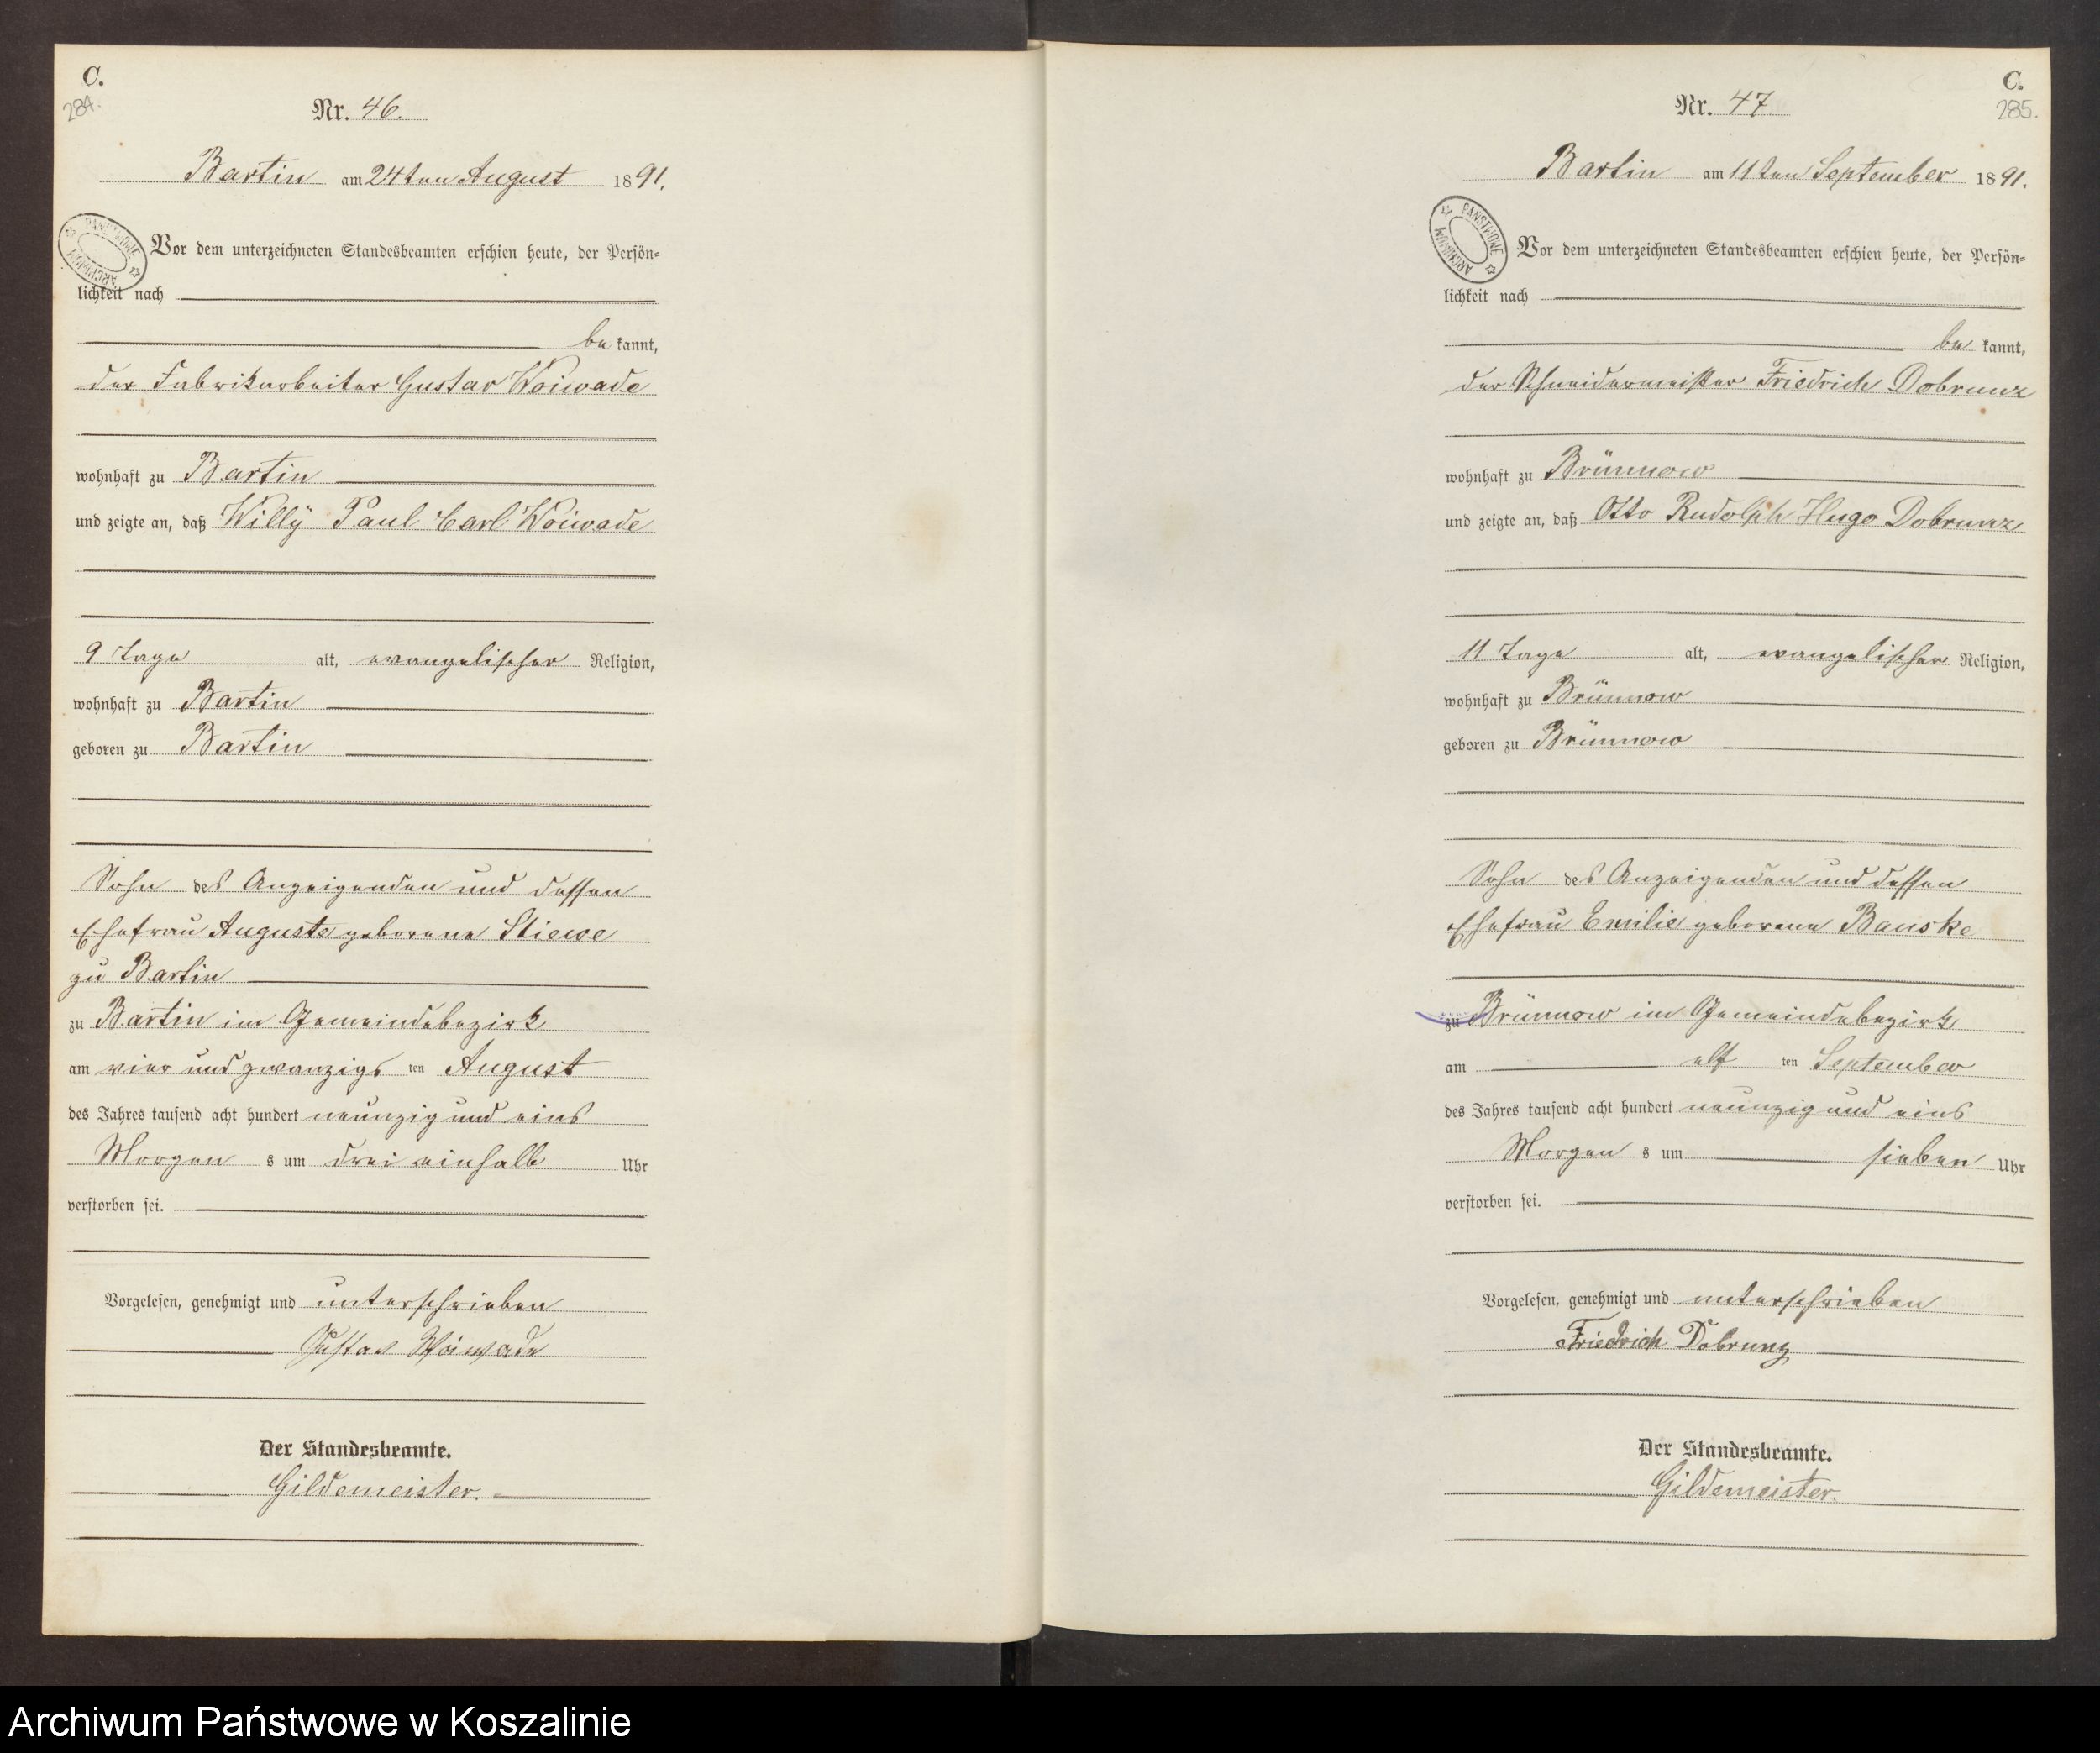 C.
284.
Nr. 46.
Bartin am 24ten August 1891.
PANSTWOWE ARCHIWUM
Vor dem unterzeichneten Standesbeamten erschien heute, der Persön-
lichkeit nach
be kannt,
der Fabrikarbeiter Gustav Woiwade
wohnhaft zu Bartin
und zeigte an, daß Willÿ Paul Carl Woiwade
9 Tage alt, evangelischer Religion,
wohnhaft zu Bartin
geboren zu Bartin
Sohn des Anzeigenden und dessen
Ehefrau Auguste geborene Stiewe
zu Bartin
zu Bartin im Gemeindebezirk
am vier und zwanzigs ten August
des Jahres tausend acht hundert neunzig und eins
Morgen s um drei einhalb Uhr
verstorben sei.
Vorgelesen, genehmigt und unterschrieben
Gustav Woiwade
Der Standesbeamte.
Gildemeister.
C.
285.
Nr. 47.
Bartin am 11ten September 1891.
PANSTWOWE ARCHIWUM
Vor dem unterzeichneten Standesbeamten erschien heute, der Persön-
lichkeit nach
be kannt,
der Schneidermeister Friedrich Dobrunz
wohnhaft zu Brünnow
und zeigte an, daß Otto Rudolph Hugo Dobrunz
11 Tage alt, evangelischer Religion,
wohnhaft zu Brünnow
geboren zu Brünnow
Sohn des Anzeigenden und dessen
Ehefrau Emilie geborene Banske
zu Brünnow im Gemeindebezirk
am elf ten September
des Jahres tausend acht hundert neunzig und eins
Morgen s um sieben Uhr
verstorben sei.
Vorgelesen, genehmigt und unterschrieben
Friedrich Dobrunz
Der Standesbeamte.
Gildemeister.
Archiwum Państwowe w Koszalinie